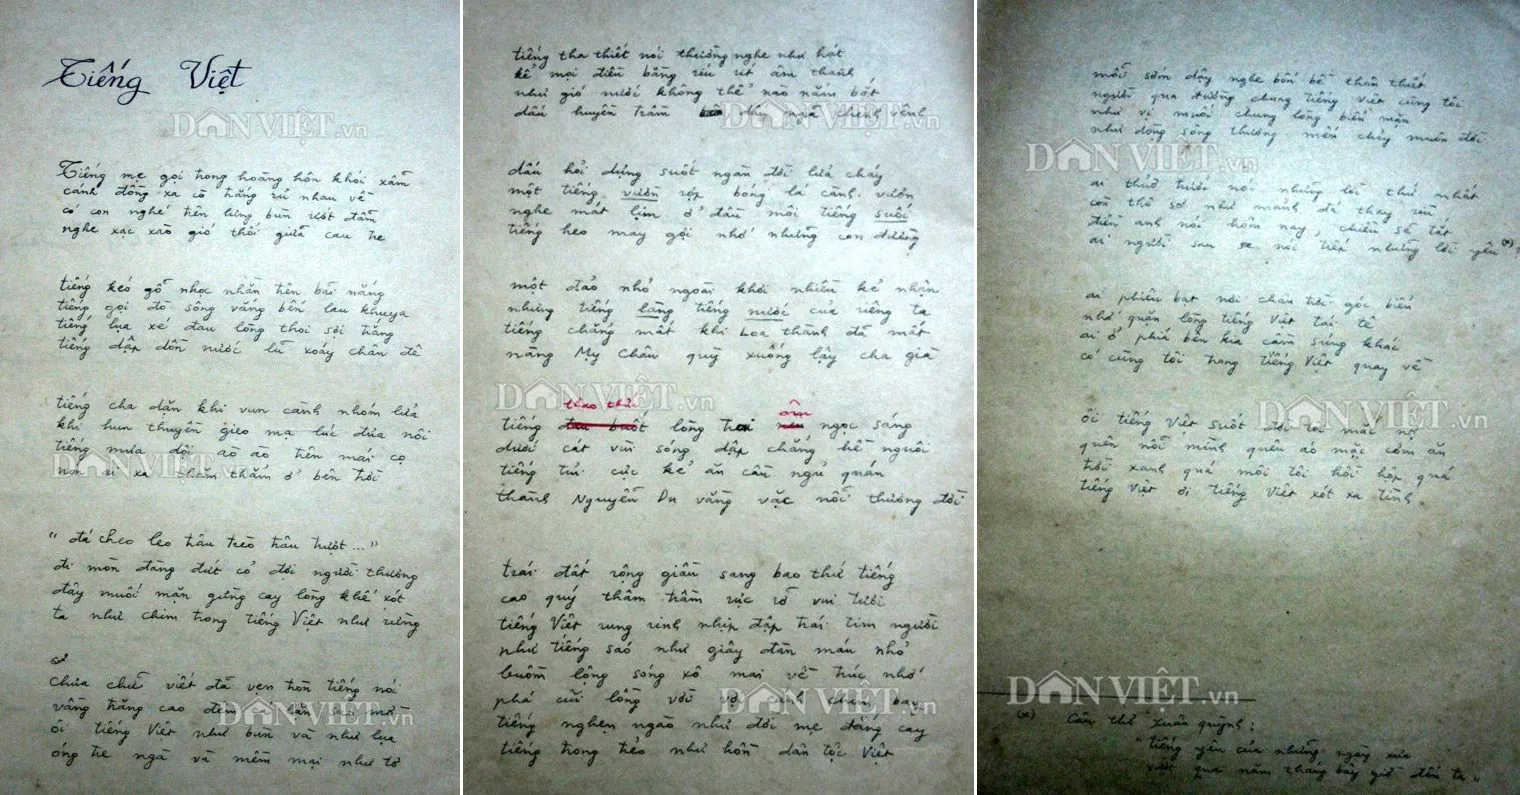 Tiếng Việt
Tiếng mẹ gọi trong hoàng hôn khói xẫm
cánh đồng xa cò trắng rủ nhau về
có con nghé trên lưng bùn ướt đẫm
nghe xạc xào gió thổi giữa cau tre
tiếng kéo gỗ nhọc nhằn trên bãi nắng
tiếng gọi đò sông vắng bến lau khuya
tiếng lụa xé đau lòng thoi sợi trắng
tiếng dập dồn nước lũ xoáy chân đê
tiếng cha dặn khi vun cành nhóm lửa
khi hun thuyền gieo mạ lúc đưa nôi
tiếng mưa dội ào ào trên mái cọ
nón ai xa thăm thẳm ở bên trời
"đá cheo leo trâu trèo trâu trượt..."
đi mòn đàng đứt cỏ đợi người thương
đây muối mặn gừng cay lòng khế xót
ta như chim trong tiếng Việt như rừng
chưa chữ viết đã vẹn tròn tiếng nói
vầng trăng cao đêm cá lặn sao mờ
ôi tiếng Việt như bùn và như lụa
óng tre ngà và mềm mại như tơ
tiếng tha thiết nói thường nghe như hát
kể mọi điều bằng ríu rít âm thanh
như gió nước không thể nào nắm bắt
dấu huyền trầm dấu ngã chênh vênh
dấu hỏi dựng suốt ngàn đời lửa cháy
một tiếng vườn rợp bóng lá cành vươn
nghe mát lịm ở đầu môi tiếng suối
tiếng heo may gợi nhớ những con đường
một đảo nhỏ ngoài khơi nhiều kẻ nhận
nhưng tiếng làng tiếng nước của riêng ta
tiếng chẳng mất khi Loa thành đã mất
nàng Mỵ Châu quỳ xuống lạy cha già
thao thức
ôm
tiếng lòng trai ngọc sáng
dưới cát vùi sóng dập chẳng hề nguôi
tiếng tủi cực kẻ ăn cầu ngủ quán
thành Nguyễn Du vằng vặc nỗi thương đời
trái đất rộng giàu sang bao thứ tiếng
cao quý thâm trầm rực rỡ vui tươi
tiếng Việt rung rinh nhịp đập trái tim người
như tiếng sáo như giây đàn máu nhỏ
buồm lộng sóng xô mai về trúc nhớ
phá cũi lồng vời vợi cánh chim bay
tiếng nghẹn ngào như đời mẹ đắng cay
tiếng trong trẻo như hồn dân tộc Việt
mỗi sớm dậy nghe bốn bề thân thiết
người qua đường chung tiếng Việt cùng tôi
như vị muối chung lòng biển mặn
như dòng sông thương mến chảy muôn đời
ai thuở trước nói những lời thứ nhất
còn thô sơ như mảnh đá thay rìu
điều anh nói hôm nay, chiều sẽ tắt
ai người sau nói tiếp những lời yêu (x) ?
ai phiêu bạt nơi chân trời góc biển
nhớ quặn lòng tiếng Việt tái tê
ai ở phía bên kia cầm súng khác
có cùng tôi trong tiếng Việt quay về
ôi tiếng Việt suốt đời tôi mắc nợ
quên nỗi mình quên áo mặc cơm ăn
trời xanh quá môi tôi hồi hộp quá
tiếng Việt ơi tiếng Việt xót xa tình.
(x) Câu thơ Xuân Quỳnh:
"tiếng yêu của những ngày xưa
vượt qua năm tháng bây giờ đến ta"
DÂN VIỆT.vn
DÂN VIỆT.vn
DÂN VIỆT.vn
DÂN VIỆT.vn
DÂN VIỆT.vn
DÂN VIỆT.vn
DÂN VIỆT.vn
DÂN VIỆT.vn
DÂN VIỆT.vn